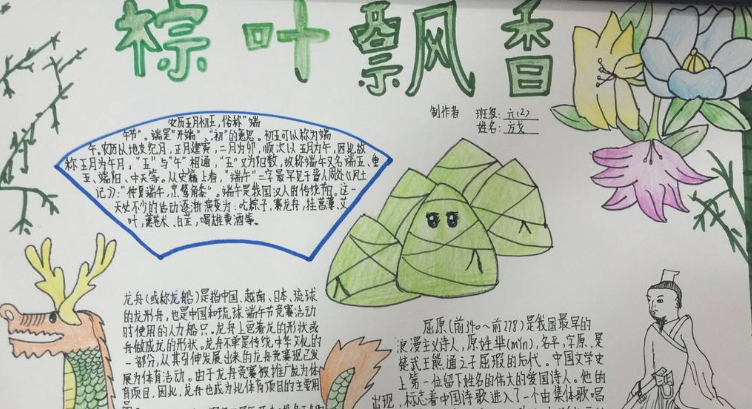 棕叶飘香
制作者 班级：六(2)
姓名：方戈
农历五月初五，俗称“端
午节”。端是“开端”、“初”的意思。初五可以称为端
午。农历以地支纪月，正月建寅，二月为卯，顺次以五月为午，因此故
称五月为午月，“五”与“午”相通，“五”又为阳数，故称端午又名端五、重
五、端阳、中天等。从史籍上看，“端午”二字最早见于晋人周处《风土
记》：“仲夏端午，烹鹜角黍”。端午是我国汉人的传统节日。这一
天必不少的活动逐渐演变为：吃粽子，赛龙舟，挂菖蒲、艾
叶，薰苍术、白芷，喝雄黄酒等。
龙舟(或称龙船)是指中国、越南、日本、琉球
的龙形舟，也是中国和琉球端午节竞赛活动
时使用的人力船只。龙舟上画着龙的形状或
舟做成龙的形状。龙舟不单是传统中华文化的
一部分，从其引伸发展出来的龙舟竞赛现已发
展为体育活动。由于龙舟竞赛被推广发为体
育项目，因此，龙舟也成为此体育项目的主要用
屈原(前340～前278)是我国最早的
浪漫主义诗人，原姓芈(mǐ)，名平，字原，是
楚武王熊通之子屈瑕的后代。中国文学史
上第一位留下姓名的伟大的爱国诗人。他的
出现，标志着中国诗歌进入了一个由集体歌唱